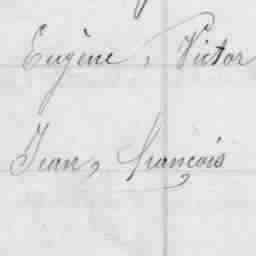 Eugène, Victor
Jean, François